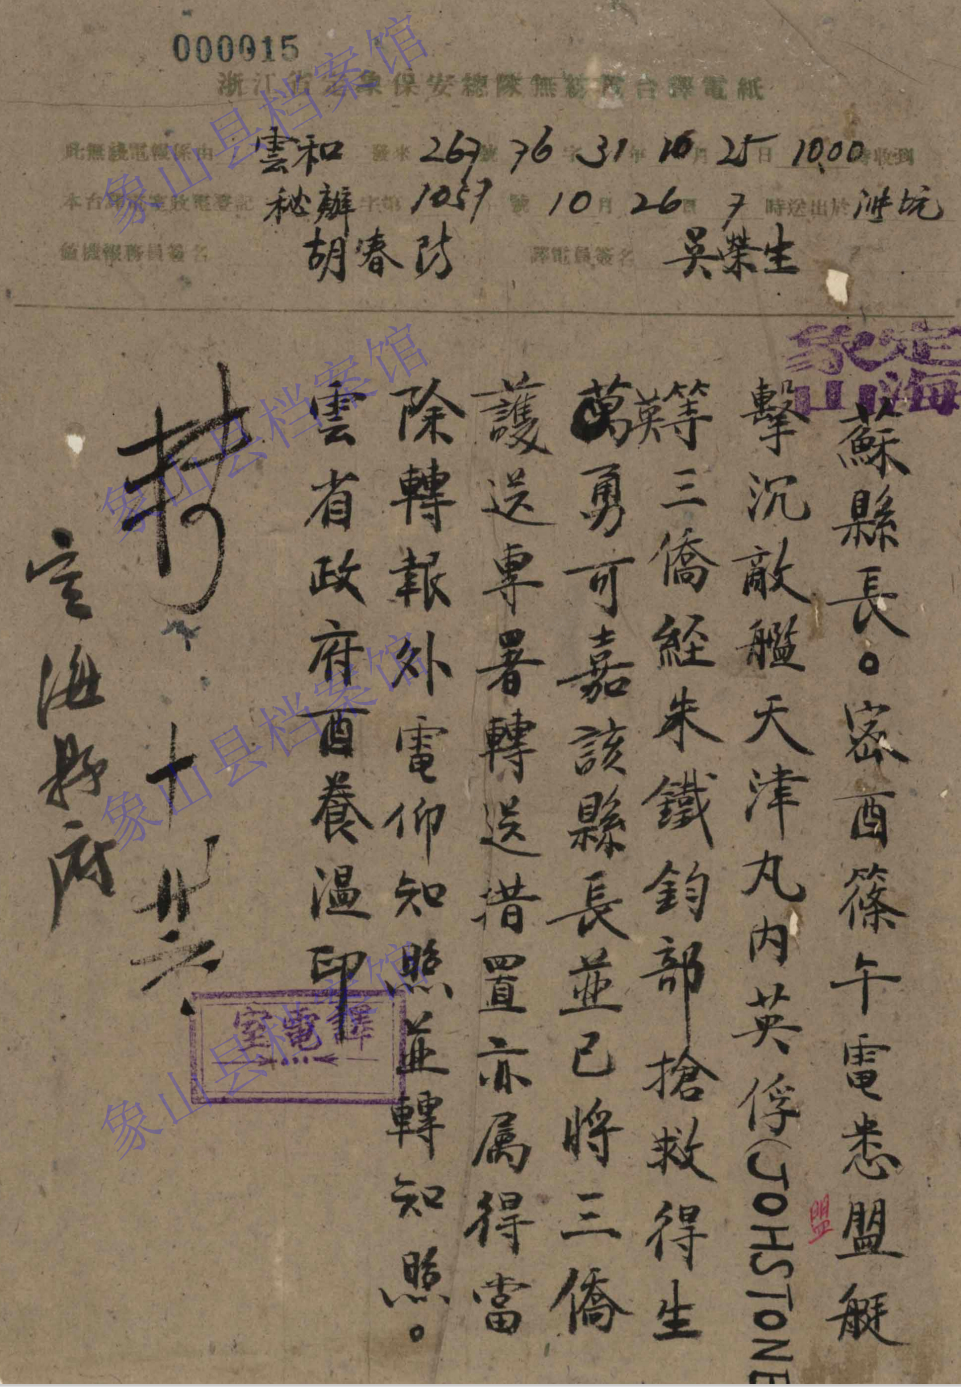 000015
浙江省定象保安總隊無線電台譯電紙
此無綫電報係由 雲和 發來 267 號 76 字 31 年 10 月 25 日 10.00 時收到
本台譯電室收電登記 秘辦 字第 1057 號 10 月 26 日 7 時送出於 泄坑
值機報務員簽名 胡春 譯電員簽名 吳榮生
定海
象山
蘇縣長。密酉篠午電悉盟艇
擊沉敵艦天津丸內英俘(JOHSTONE
等三僑經朱鐵鈞部搶救得生
英萬勇可嘉該縣長並已將三僑
護送專署轉送措置亦屬得當
除轉報外電仰知照並轉知照。
雲省政府酉養溫印
盟
譯電室
抄
十 廿六
定海縣府
象山县档案馆
象山县档案馆
象山县档案馆
象山县档案馆